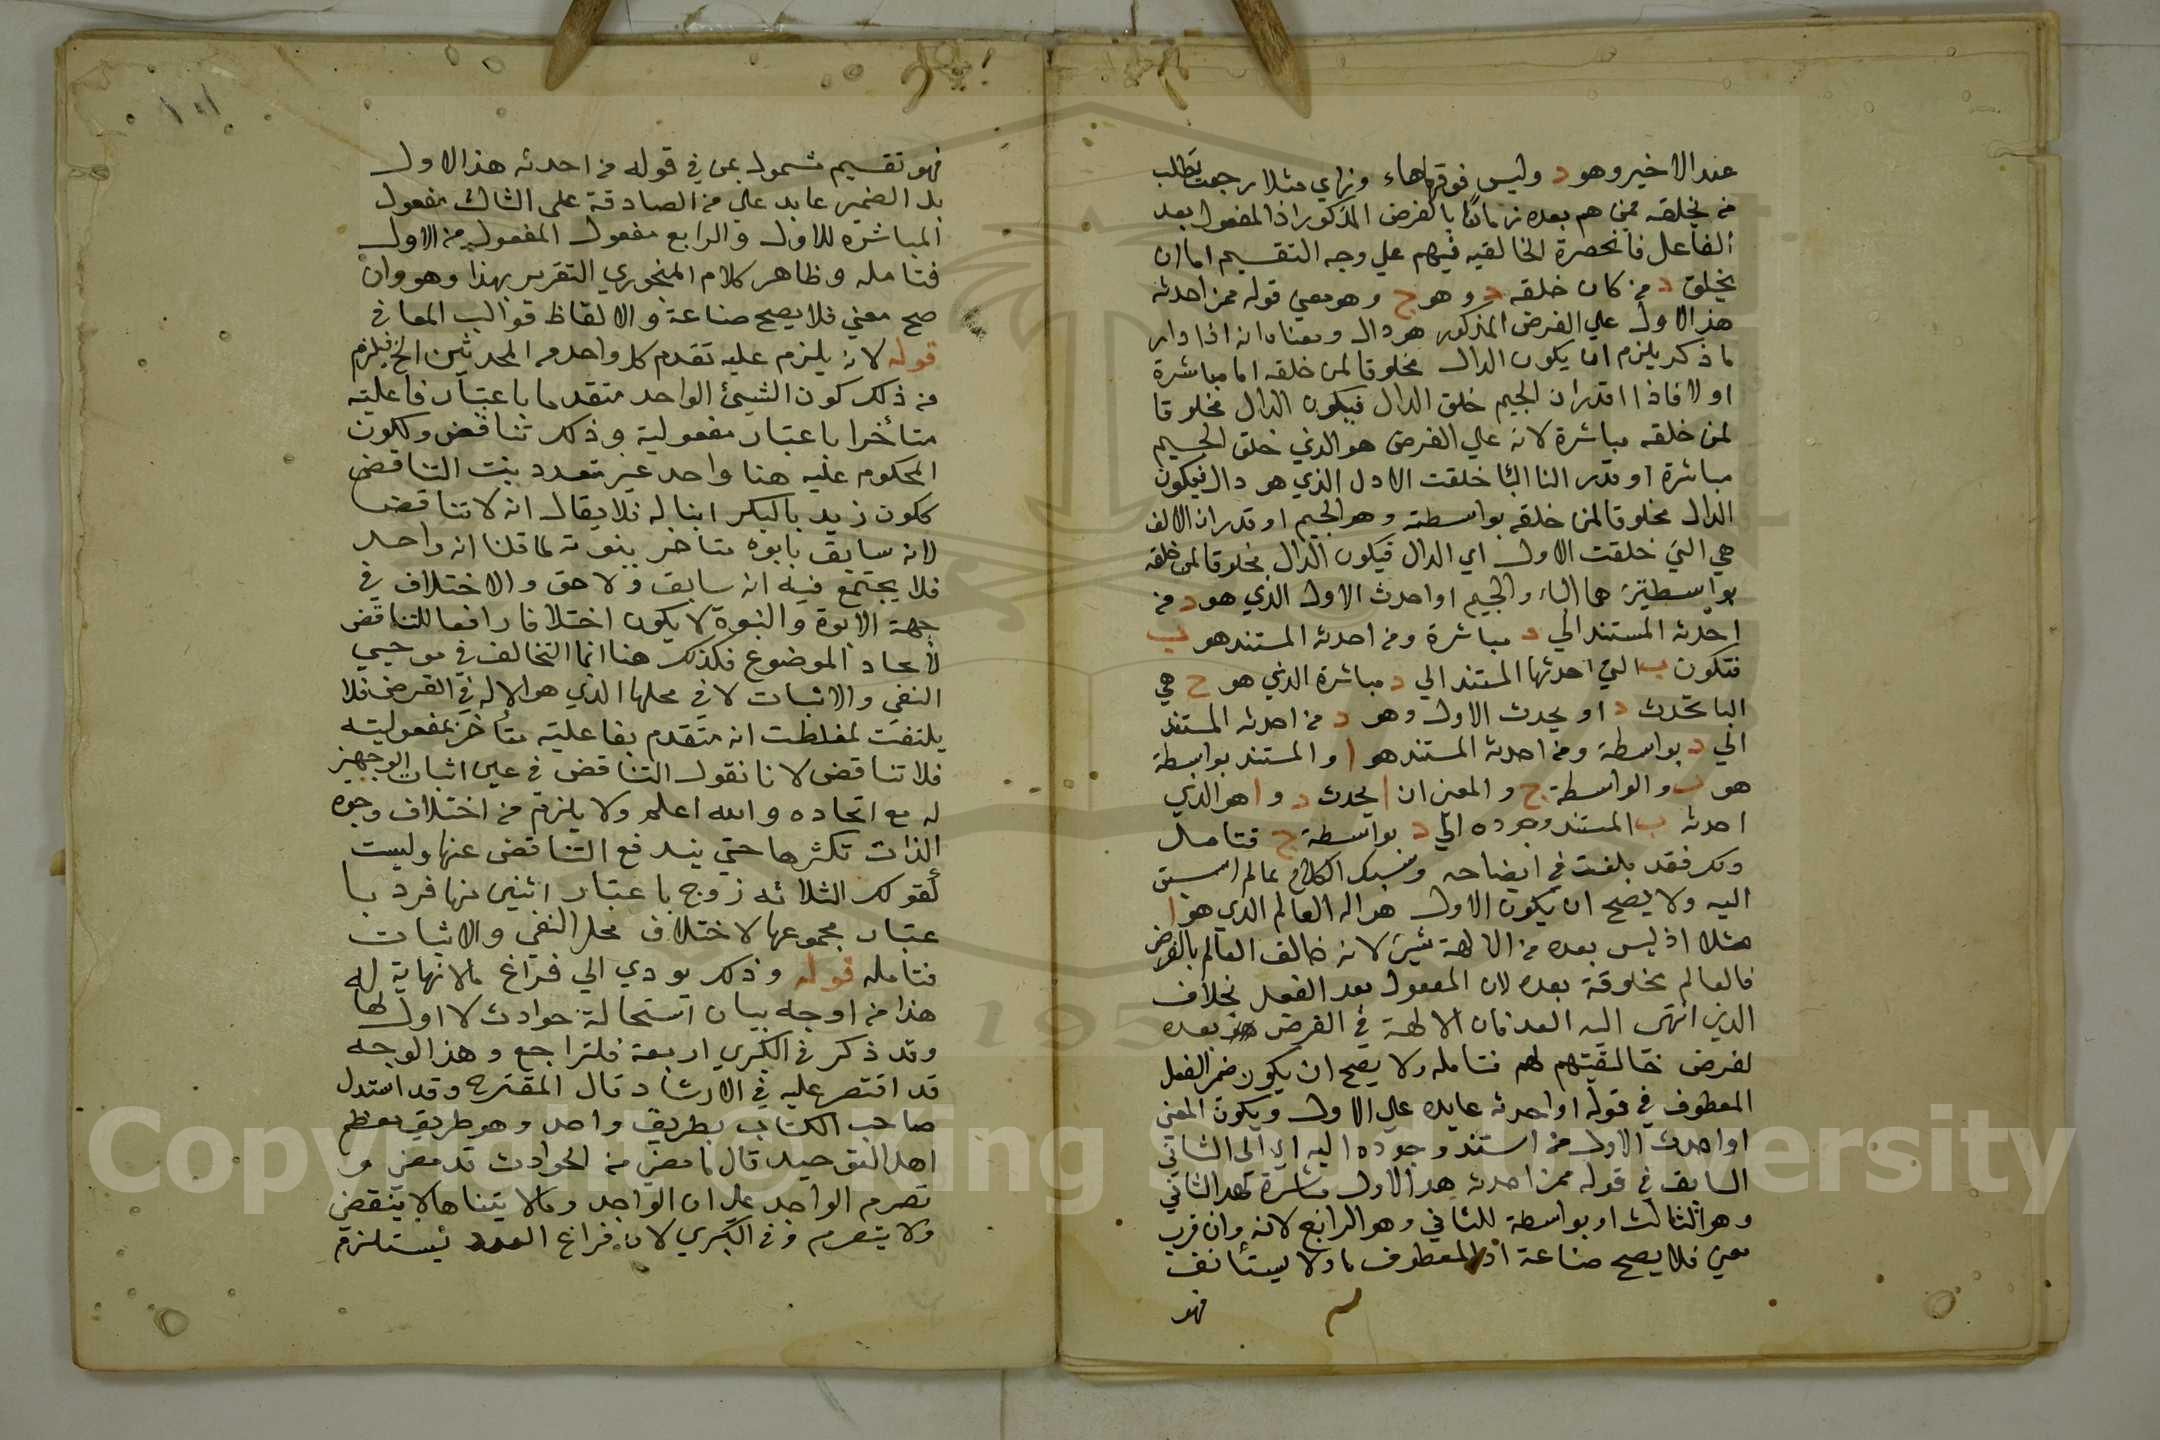 عند الاخير وهو د وليس فوقها هاء وزاي مثلا رجعت تطلب
من يخلقه ممن هم بعده زمانا بالفرض المذكور اذ المفعول بعد
الفاعل فانحصرة الخالقيه فيهم علي وجه التقسيم اما ان
يخلق د من كان خلقه د وهو ج وهو معني قوله ممن احدثه
هذا الاول علي الفرض المذكور هو دال ومعناه انه اذا دار
ما ذكر يلزم ان يكون الدال مخلوقا لمن خلقه اما مباشرة
او لا فاذا اقدر ان الجيم خلق الدال فيكون الدال مخلوقا
لمن خلقه مباشرة لانه علي الفرض هو الذي خلق الجيم
مباشرة او قدر لنا البا خلقت الاول الذي هو دال فيكون
الدال مخلوقا لمن خلقه بواسطة وهو الجيم او قدر ان الالف
هي التي خلقت الاول اي الدال فيكون الدال مخلوقا لمن خلقه
بواسطتين هما الباء والجيم او احدث الاول الذي هو د من
احدثه المستند الي د مباشرة ومن احدثه المستند هو ب
فتكون ب التي احدثها المستند الي د مباشرة الذي هو ج هي
البا تحدث د او يحدث الاول وهو د من احدثه المستند
الي د بواسطة ومن احدثه المستند هو ا والمستند بواسطة
هو ب والواسطة ج والمعني ان ا يحدث د و ا هو الذي
احدثه ب المستند وجوده الي د بواسطة ج فتامل
وكر فقد بلغت في ايضاحه وسبك الكلام عالم اسبق
اليه ولا يصح ان يكون الاول هو اله العالم الذي هو ا
مثلا اذ ليس بعده من الالهة شيئ لانه خالق العالم بالفرض
فالعالم مخلوقة بعده لان المفعول بعد الفعل بخلاف
الذي انتهى اليه العد فان الالهة في الفرض بعده
لفرض خالقيتهم لهم فتامله ولا يصح ان يكون ضمير الفعل
المعطوف في قوله او احدثه عايده علي الاول ويكون المعني
او احدث الاول من استند وجوده اليه اي الي الثاني
السابق في قوله ممن احدثه هذا الاول مباشرة لهذا الثاني
وهو الثالث او بواسطة للثاني وهو الرابع لانه وان قرب
معني فلا يصح صناعة اذ المعطوف ما ولا يستأنف
فهو
١٥١
فهو تقسيم شمول بمن في قوله من احدثه هذا الاول
بل الضمير عايد علي من الصادقة على الثالث مفعول
المباشرة للاول والرابع مفعول المفعول من الاول
فتامله وظاهر كلام المنجوري التقرير بهذا وهو وان
صح معني فلا يصح صناعة والالفاظ قوالب المعاني
قوله لانه يلزم عليه تقدم كل واحد من المحدثين الخ فيلزم
من ذلك كون الشيئ الواحد متقدما باعتبار فاعليته
متأخرا باعتبار مفعولية وذلك تناقض ولكون
المحكوم عليه هنا واحد غير متعدد بنيت التناقض
ككون زيد بالبكر ابنا له فلا يقال انه لا تناقض
لانه سابق بابوه متاخر ببنوته لما قلنا انه واحد
فلا يجتمع فيه انه سابق ولا حق والاختلاف في
جهة الابوة والنبوة لا يكون اختلافا رافعا للتناقض
لاتحاد الموضوع فكذلك هنا انما التخالف في موجبي
النفي والاثبات لا في محلها الذي هو الاله في الفرض فلا
يلتفت لمغلطت انه متقدم بفاعليته متأخر بمفعوليته
فلا تناقض لانا نقول التناقض في عين اثبات الوجهين
له مع اتحاده والله اعلم ولا يلزم من اختلاف وجوه
الذات تكثرها حتي يندفع التناقض عنها وليست
كقولك الثلاثه زوج باعتبار اثنين منها فرد با
عتبار مجموعها لاختلاف محل النفي والاثبات
فتامله قوله وذلك يودي الي فراغ مالانهاية له
هذا من اوجه بيان استحالة حوادث لا اول لها
وقد ذكر في الكبري اربعة فلتراجع وهذا الوجه
قد اقتصر عليه في الارشاد قال المقترح وقد استدل
صاحب الكتاب بطريق واحد وهو طريق معظم
اهل التوحيد قال ما مضي من الحوادث قد مضي و
تصرم الواحد علي ان الواحد وما لا يتناها لا ينقض
ولا يتصرم وفي الكبري لان فراغ العدد يستلزم
Copyright © King Saud University
1957